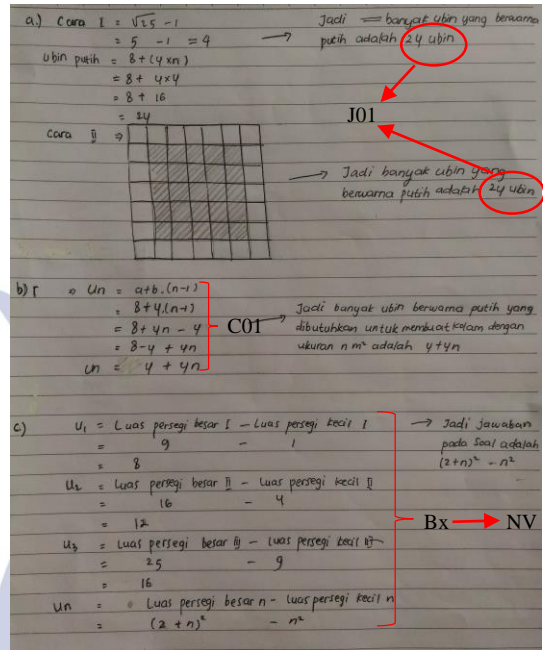 a.) Cara I = √25 - 1
= 5 - 1 = 4
ubin putih = 8 + (4xn)
= 8 + 4x4
= 8 + 16
= 24
Jadi banyak ubin yang berwarna
putih adalah 24 ubin
J01
Cara II ⇒
→ Jadi banyak ubin yang
berwarna putih adalah 24 ubin
b) Un = a+b.(n-1)
= 8+4.(n-1)
= 8 + 4n - 4
= 8-4 + 4n
Un = 4 + 4n
C01
Jadi banyak ubin berwarna putih yang
dibutuhkan untuk membuat kolam dengan
ukuran n m² adalah 4+4n
c) U₁ = Luas persegi besar I - Luas persegi kecil I
= 9 - 1
= 8
U₂ = Luas persegi besar II - Luas persegi kecil II
= 16 - 4
= 12
U₃ = Luas persegi besar III - Luas persegi kecil III
= 25 - 9
= 16
Un = Luas persegi besar n - Luas persegi kecil n
= (2 + n)² - n²
→ Jadi jawaban
pada soal adalah
(2+n)² - n²
Bx → NV